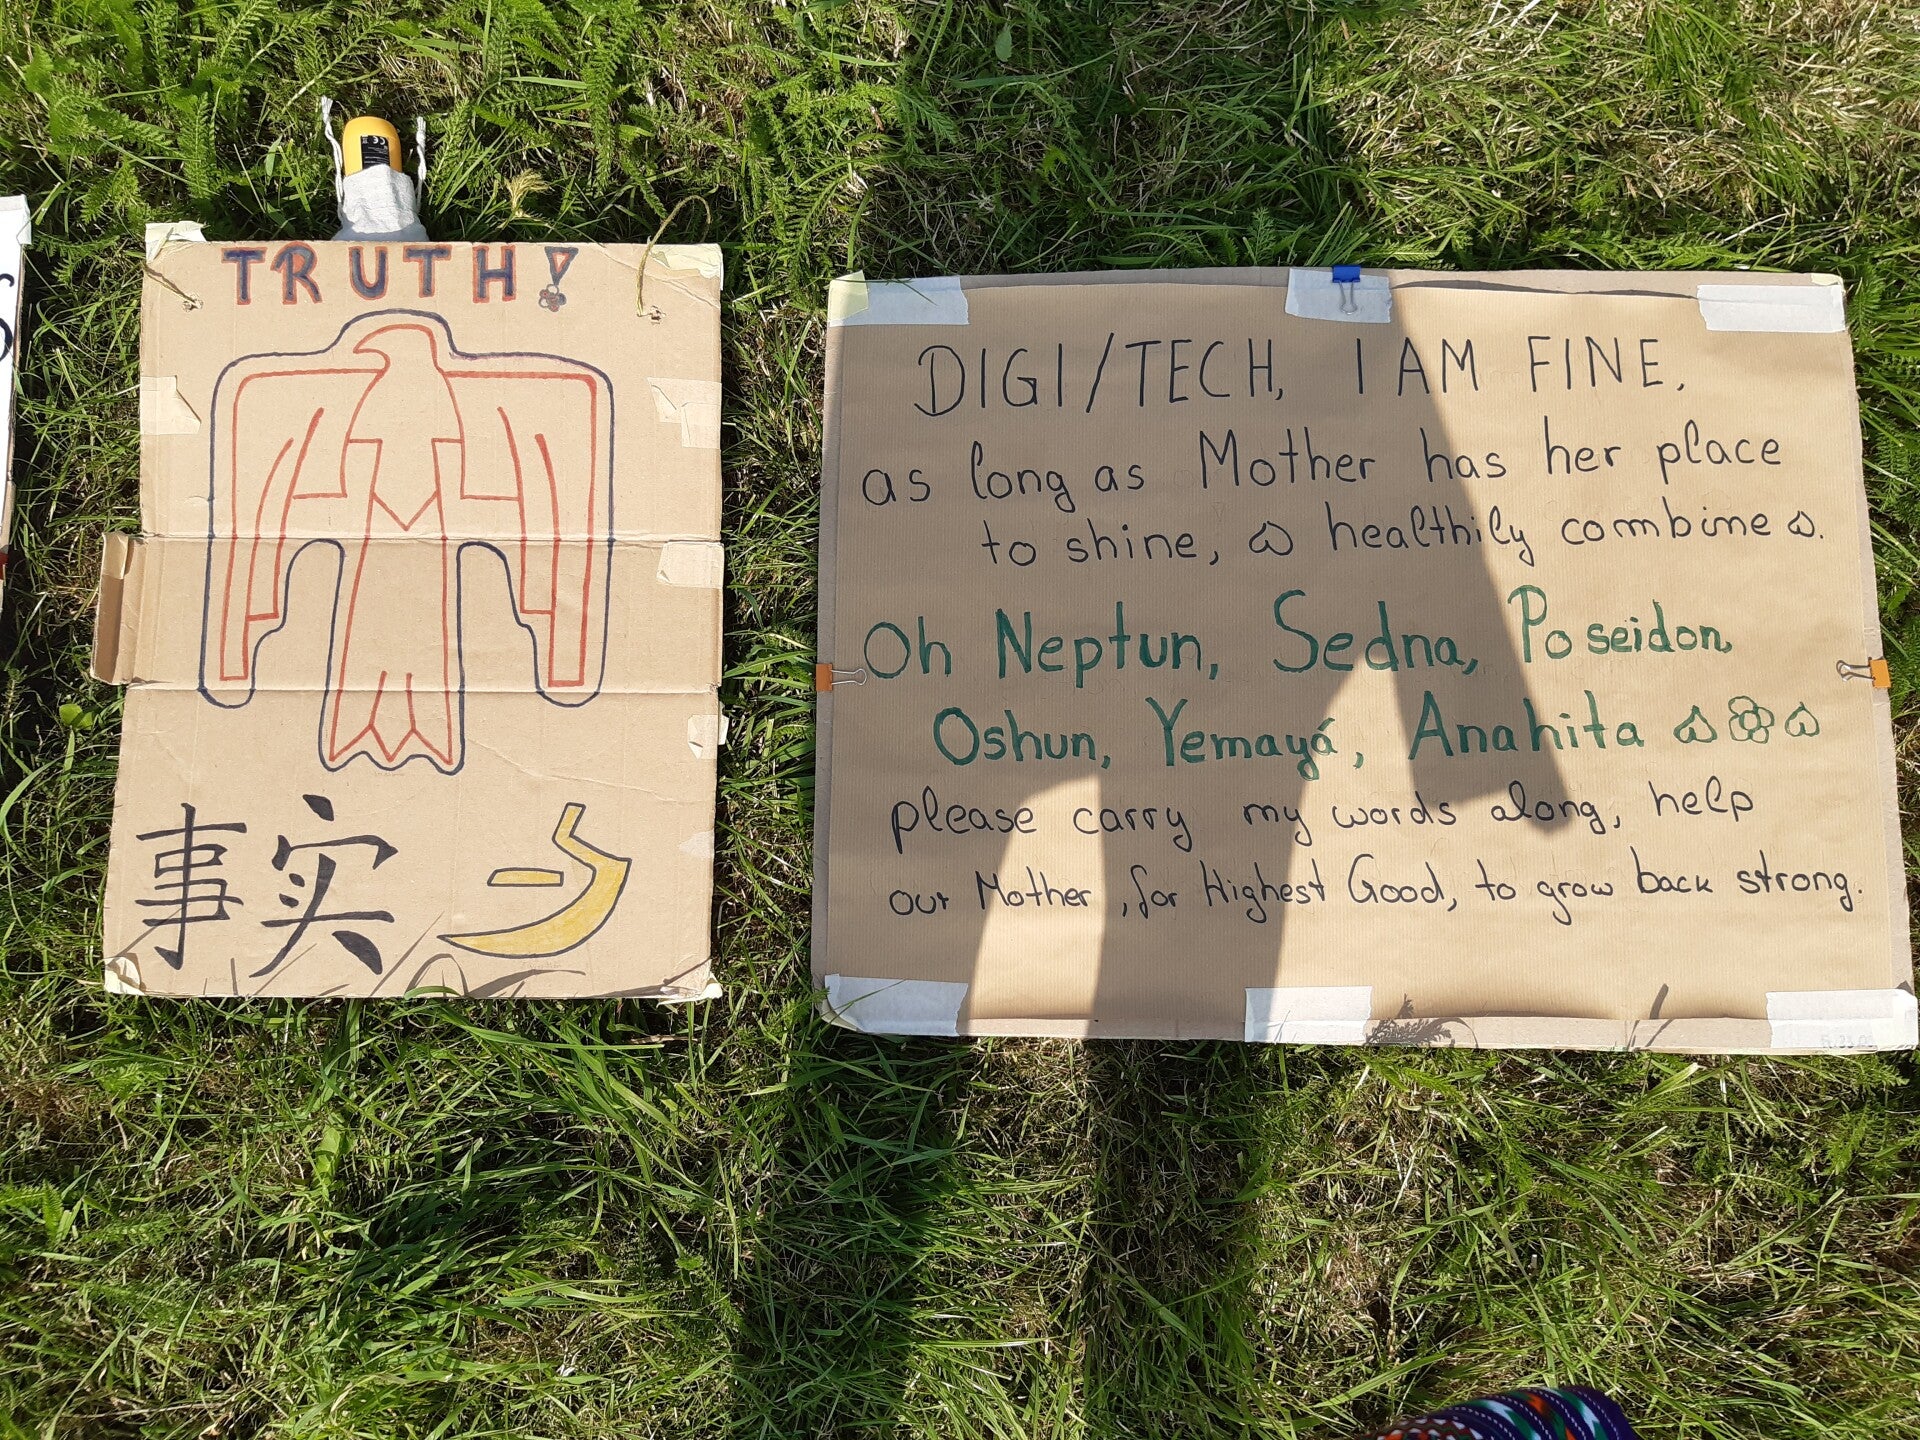 TRUTH!
事实
DIGI/TECH, I AM FINE,
as long as Mother has her place
to shine, healthily combine.
Oh Neptun, Sedna, Poseidon,
Oshun, Yemayá, Anahita
please carry my words along, help
our Mother, for Highest Good, to grow back strong.